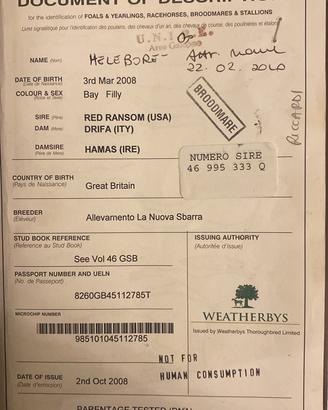 DOCUMENT OF DESCRIPTION
for the identification of FOALS & YEARLINGS, RACEHORSES, BROODMARES & STALLIONS
U.N.I.R.E.
NAME (Nom) HELEBORE
22.02.2010
DATE OF BIRTH 3rd Mar 2008
(Date de Naissance)
COLOUR & SEX Bay Filly
(Robe et Sexe)
BROODMARE
RICCARDI
SIRE (Père) RED RANSOM (USA)
DAM (Mère) DRIFA (ITY)
DAMSIRE HAMAS (IRE)
(Père de Mère)
NUMERO SIRE
46 995 333 Q
COUNTRY OF BIRTH
(Pays de Naissance) Great Britain
BREEDER Allevamento La Nuova Sbarra
(Eleveur)
STUD BOOK REFERENCE
(Reference au Stud Book)
See Vol 46 GSB
ISSUING AUTHORITY
(Autoritée d'issue)
PASSPORT NUMBER AND UELN
(No. de Passeport)
8260GB45112785T
WEATHERBYS
Issued by Weatherbys Thoroughbred Limited
MICROCHIP NUMBER
985101045112785
NOT FOR
HUMAN CONSUMPTION
DATE OF ISSUE 2nd Oct 2008
(Date d'emission)